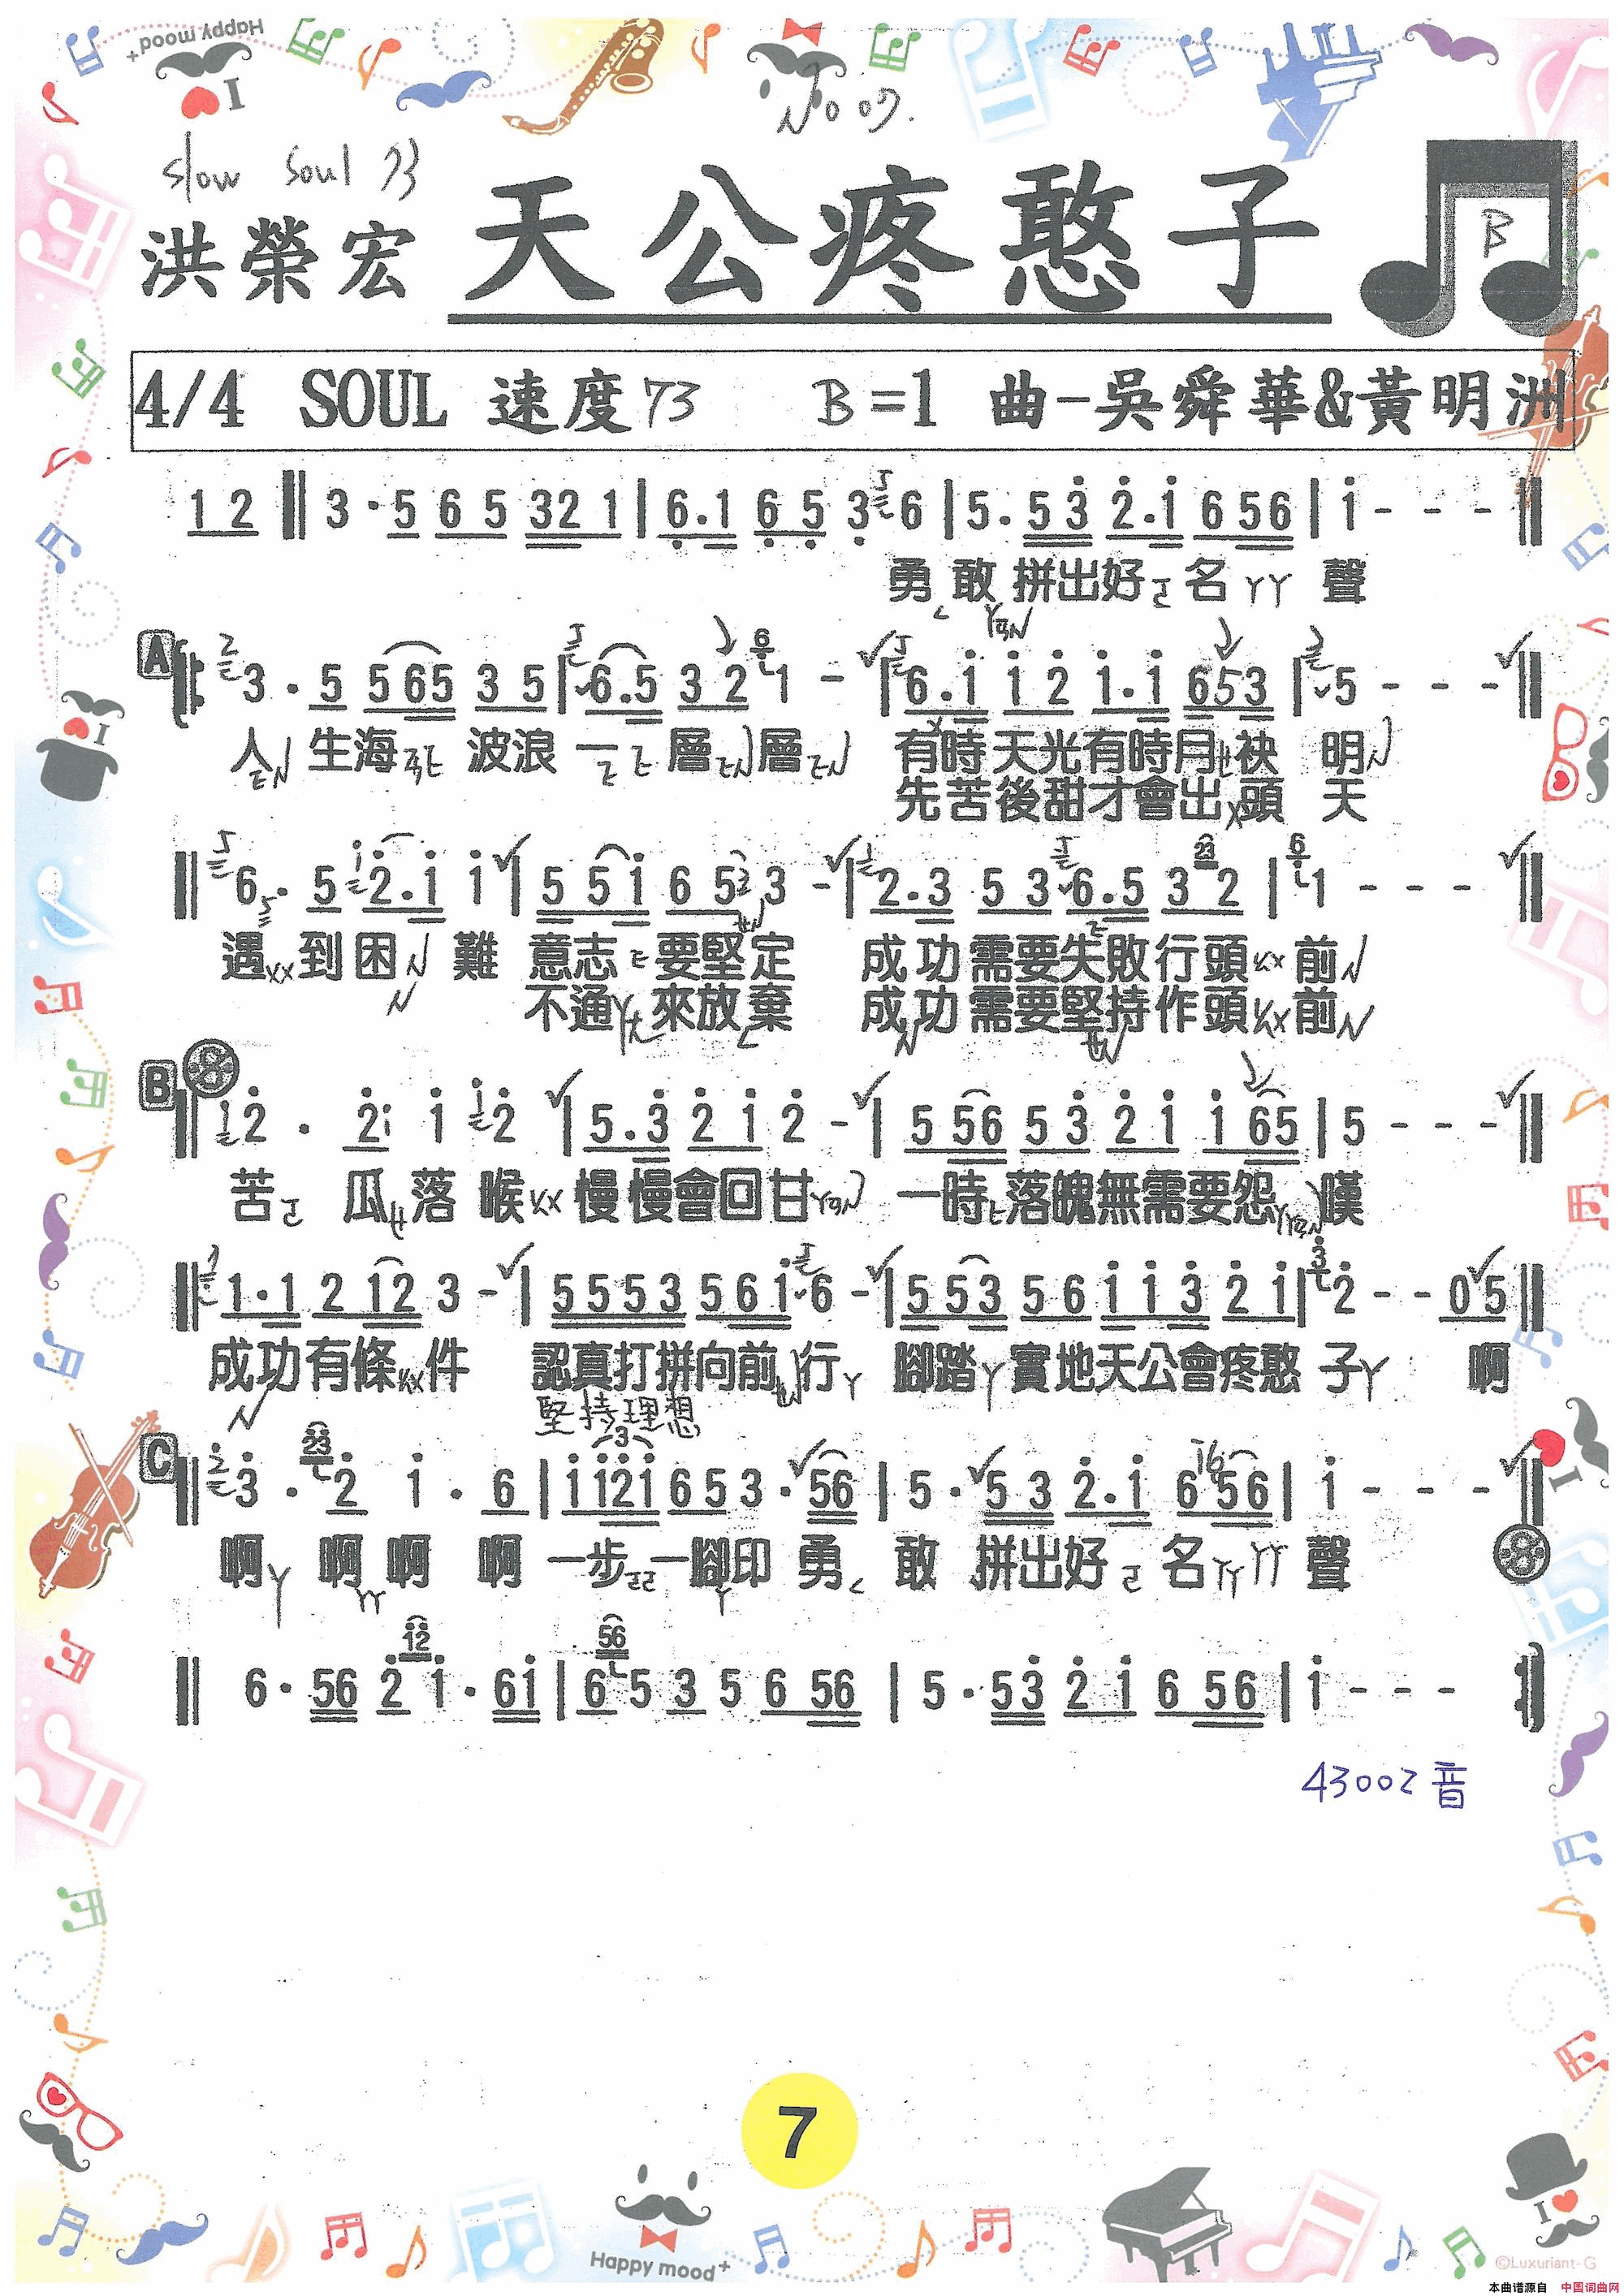 Happy mood+
I
No 07.
slow Soul 73
洪榮宏 天公疼憨子
B
4/4 SOUL 速度 73 B=1 曲-吳舜華&黃明洲
1 2 ‖ 3 · 5 6 5 32 1 | 6̣.1 6̣ 5̣ 3̣ 6 | 5. 5 3̇ 2̇.i̇ 6 56 | i̇ - - - ‖
勇 敢 拼出好 名 聲
A
3 . 5 5 65 3 5 | 6.5 3 2 1 - | 6.i̇ i̇ 2̇ i̇.i̇ 653 | 5 - - - ‖
人 生海 波浪 一 層 層 有時天光有時月袂 明
先苦後甜才會出頭 天
‖ 6. 5 2̇.i̇ i̇ | 5 5 i̇ 6 5 3 - | 2.3 5 3 6.5 3 2 | 1 - - - ‖
遇 到困 難 意志 要堅定 成功需要失敗行頭 前
不通 來放棄 成功需要堅持作頭 前
B
‖ 2̇ . 2̇i̇ i̇ 2̇ | 5.3̇ 2̇ i̇ 2̇ - | 5 56 5 3̇ 2̇ i̇ i̇ 65 | 5 - - - ‖
苦 瓜 落 喉 慢慢會回甘 一時落魄無需要怨 嘆
‖ 1.1 2 12 3 - | 5553 56i̇ 6 - | 5 53 56 i̇ i̇ 3̇ 2̇ i̇ | 2̇ - - 05 ‖
成功有條 件 認真打拼向前 行 腳踏 實地天公會疼憨 子 啊
堅持理想
C
‖ 3̇ . 2̇ i̇ . 6 | i̇i̇2̇i̇ 653 . 56 | 5 . 5 3 2̇.i̇ 6 56 | i̇ - - - ‖
啊 啊 啊 啊 一步 一腳印 勇 敢 拼出好 名 聲
‖ 6· 56 2̇ i̇. 6i̇ | 6 5 3 5 6 56 | 5 . 53̇ 2̇ i̇ 6 56 | i̇ - - - ‖
43002 音
7
Happy mood+
I
©Luxuriant-G
本曲谱源自 中国词曲网